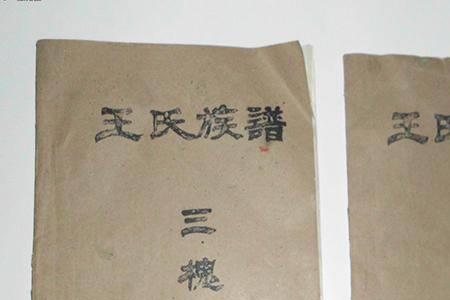 王氏族譜
三
槐
王氏